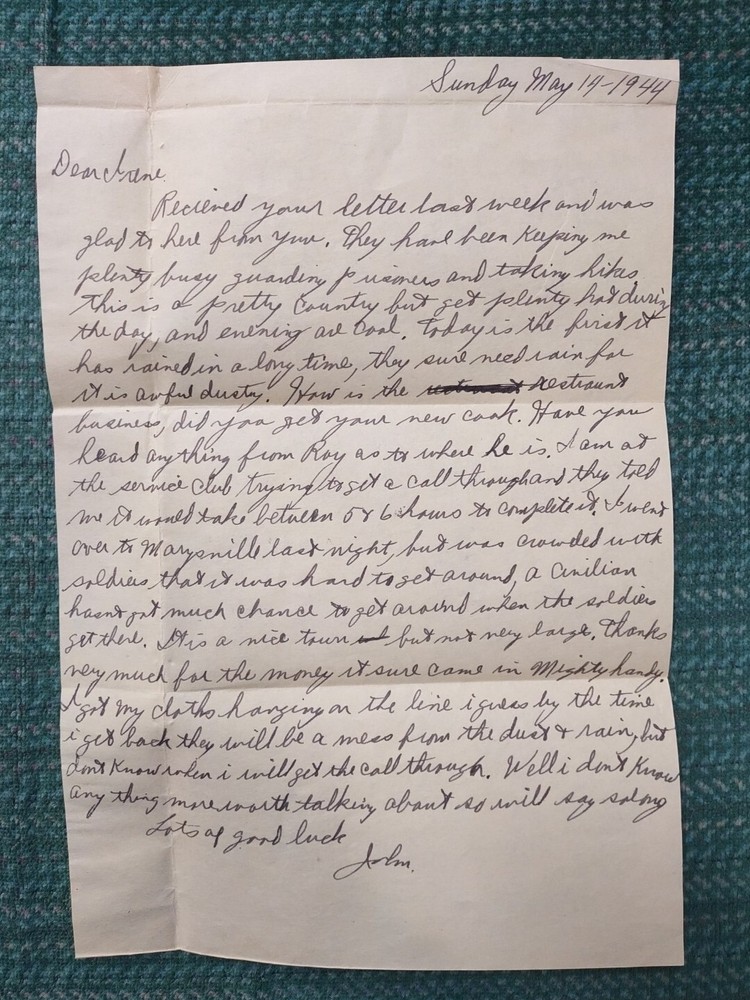 Sunday May 14-1944
Dear Irene
Recieved your letter last week and was
glad to here from you. They have been keeping me
plenty busy guarding prisoners and taking hikes
this is a pretty country but get plenty hot during
the day, and evening are cool. Today is the first it
has rained in a long time, they sure need rain for
it is awful dusty. How is the restraunt
business, did you get your new cook. Have you
heard anything from Roy as to where he is. I am at
the service club trying to get a call through and they told
me it would take between 5 & 6 hours to complete it. I went
over to Marysville last night, but was crowded with
soldiers, that it was hard to get around, a civilian
hasnt got much chance to get around when the soldiers
get there. It is a nice town but not very large. Thanks
very much for the money it sure came in Mighty handy.
I got my cloths hanging on the line i guess by the time
i get back they will be a mess from the dust & rain, but
dont know when i will get the call through. Well i dont know
any thing more worth talking about so will say solong
Lots of good luck
John.